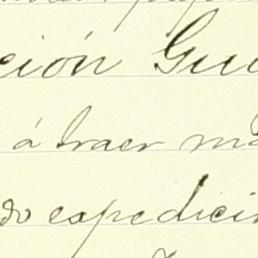 ción Gu
á traer m
do expedici